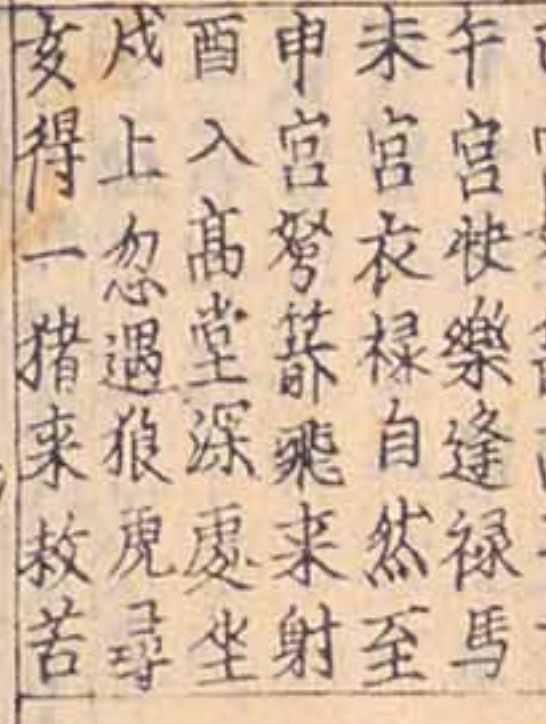 午宫快樂逢禄馬
未宫衣禄自然至
申宫弩箭飛来射
酉入高堂深處坐
戍上忽遇狼虎尋
亥得一猪来救苦